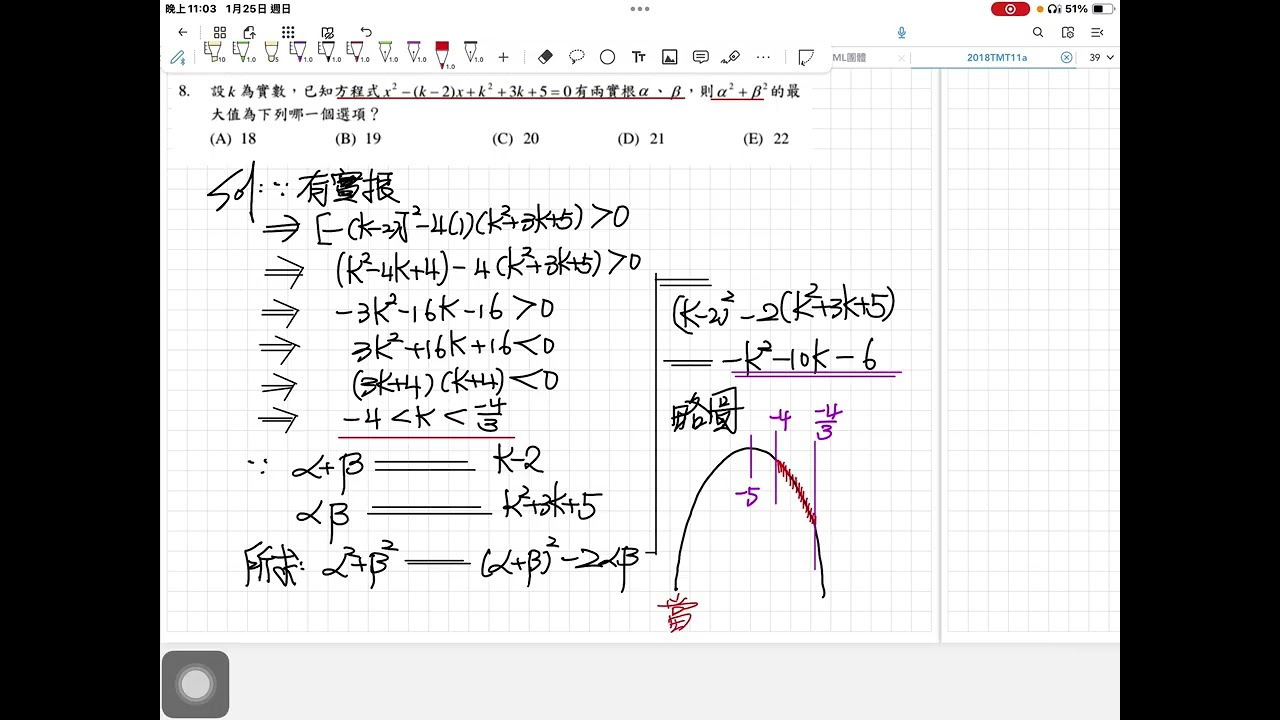 晚上11:03 1月25日 週日
51%
ML團體 2018TMT11a 39
10 1.0 5 1.0 1.0 1.0 1.0 1.0 1.0 1.0 Tт
8. 設 k 為實數，已知方程式 x² − (k − 2)x + k² + 3k + 5 = 0 有兩實根 α、β，則 α² + β² 的最
大值為下列哪一個選項？
(A) 18 (B) 19 (C) 20 (D) 21 (E) 22
Sol: ∵ 有實根
⇒ [-(k-2)]²-4(1)(k²+3k+5)>0
⇒ (k²-4k+4)-4(k²+3k+5)>0
⇒ -3k²-16k-16>0
⇒ 3k²+16k+16<0
⇒ (3k+4)(k+4)<0
⇒ -4<k<-4/3
∵ α+β = k-2
αβ = k²+3k+5
所求: α²+β² = (α+β)²-2αβ
=
(k-2)²-2(k²+3k+5)
= -k²-10k-6
略圖
-4 -4/3
-5
當